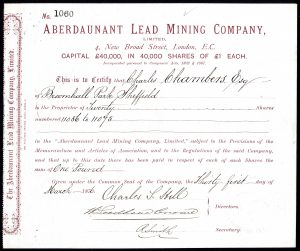 No. 1060
ABERDAUNANT LEAD MINING COMPANY,
LIMITED.
4, New Broad Street, London, E.C.
CAPITAL £40,000, IN 40,000 SHARES OF £1 EACH.
Incorporated pursuant to Companies' Acts, 1862 & 1867.
This is to Certify that Charles Chambers, Esq
of Broomhall Park Sheffield
is the Proprietor of Twenty Shares
numbered 11056 to 11075
in the "Aberdaunant Lead Mining Company, Limited," subject to the Provisions of the
Memorandum and Articles of Association, and to the Regulations of the said Company,
and that up to this date there has been paid in respect of each of such Shares the
sum of One Pound
Given under the Common Seal of the Company, the Thirty first day of
March 18
Charles S. Hill
Directors.
Secretary.
The Aberdaunant Lead Mining Company, Limited.